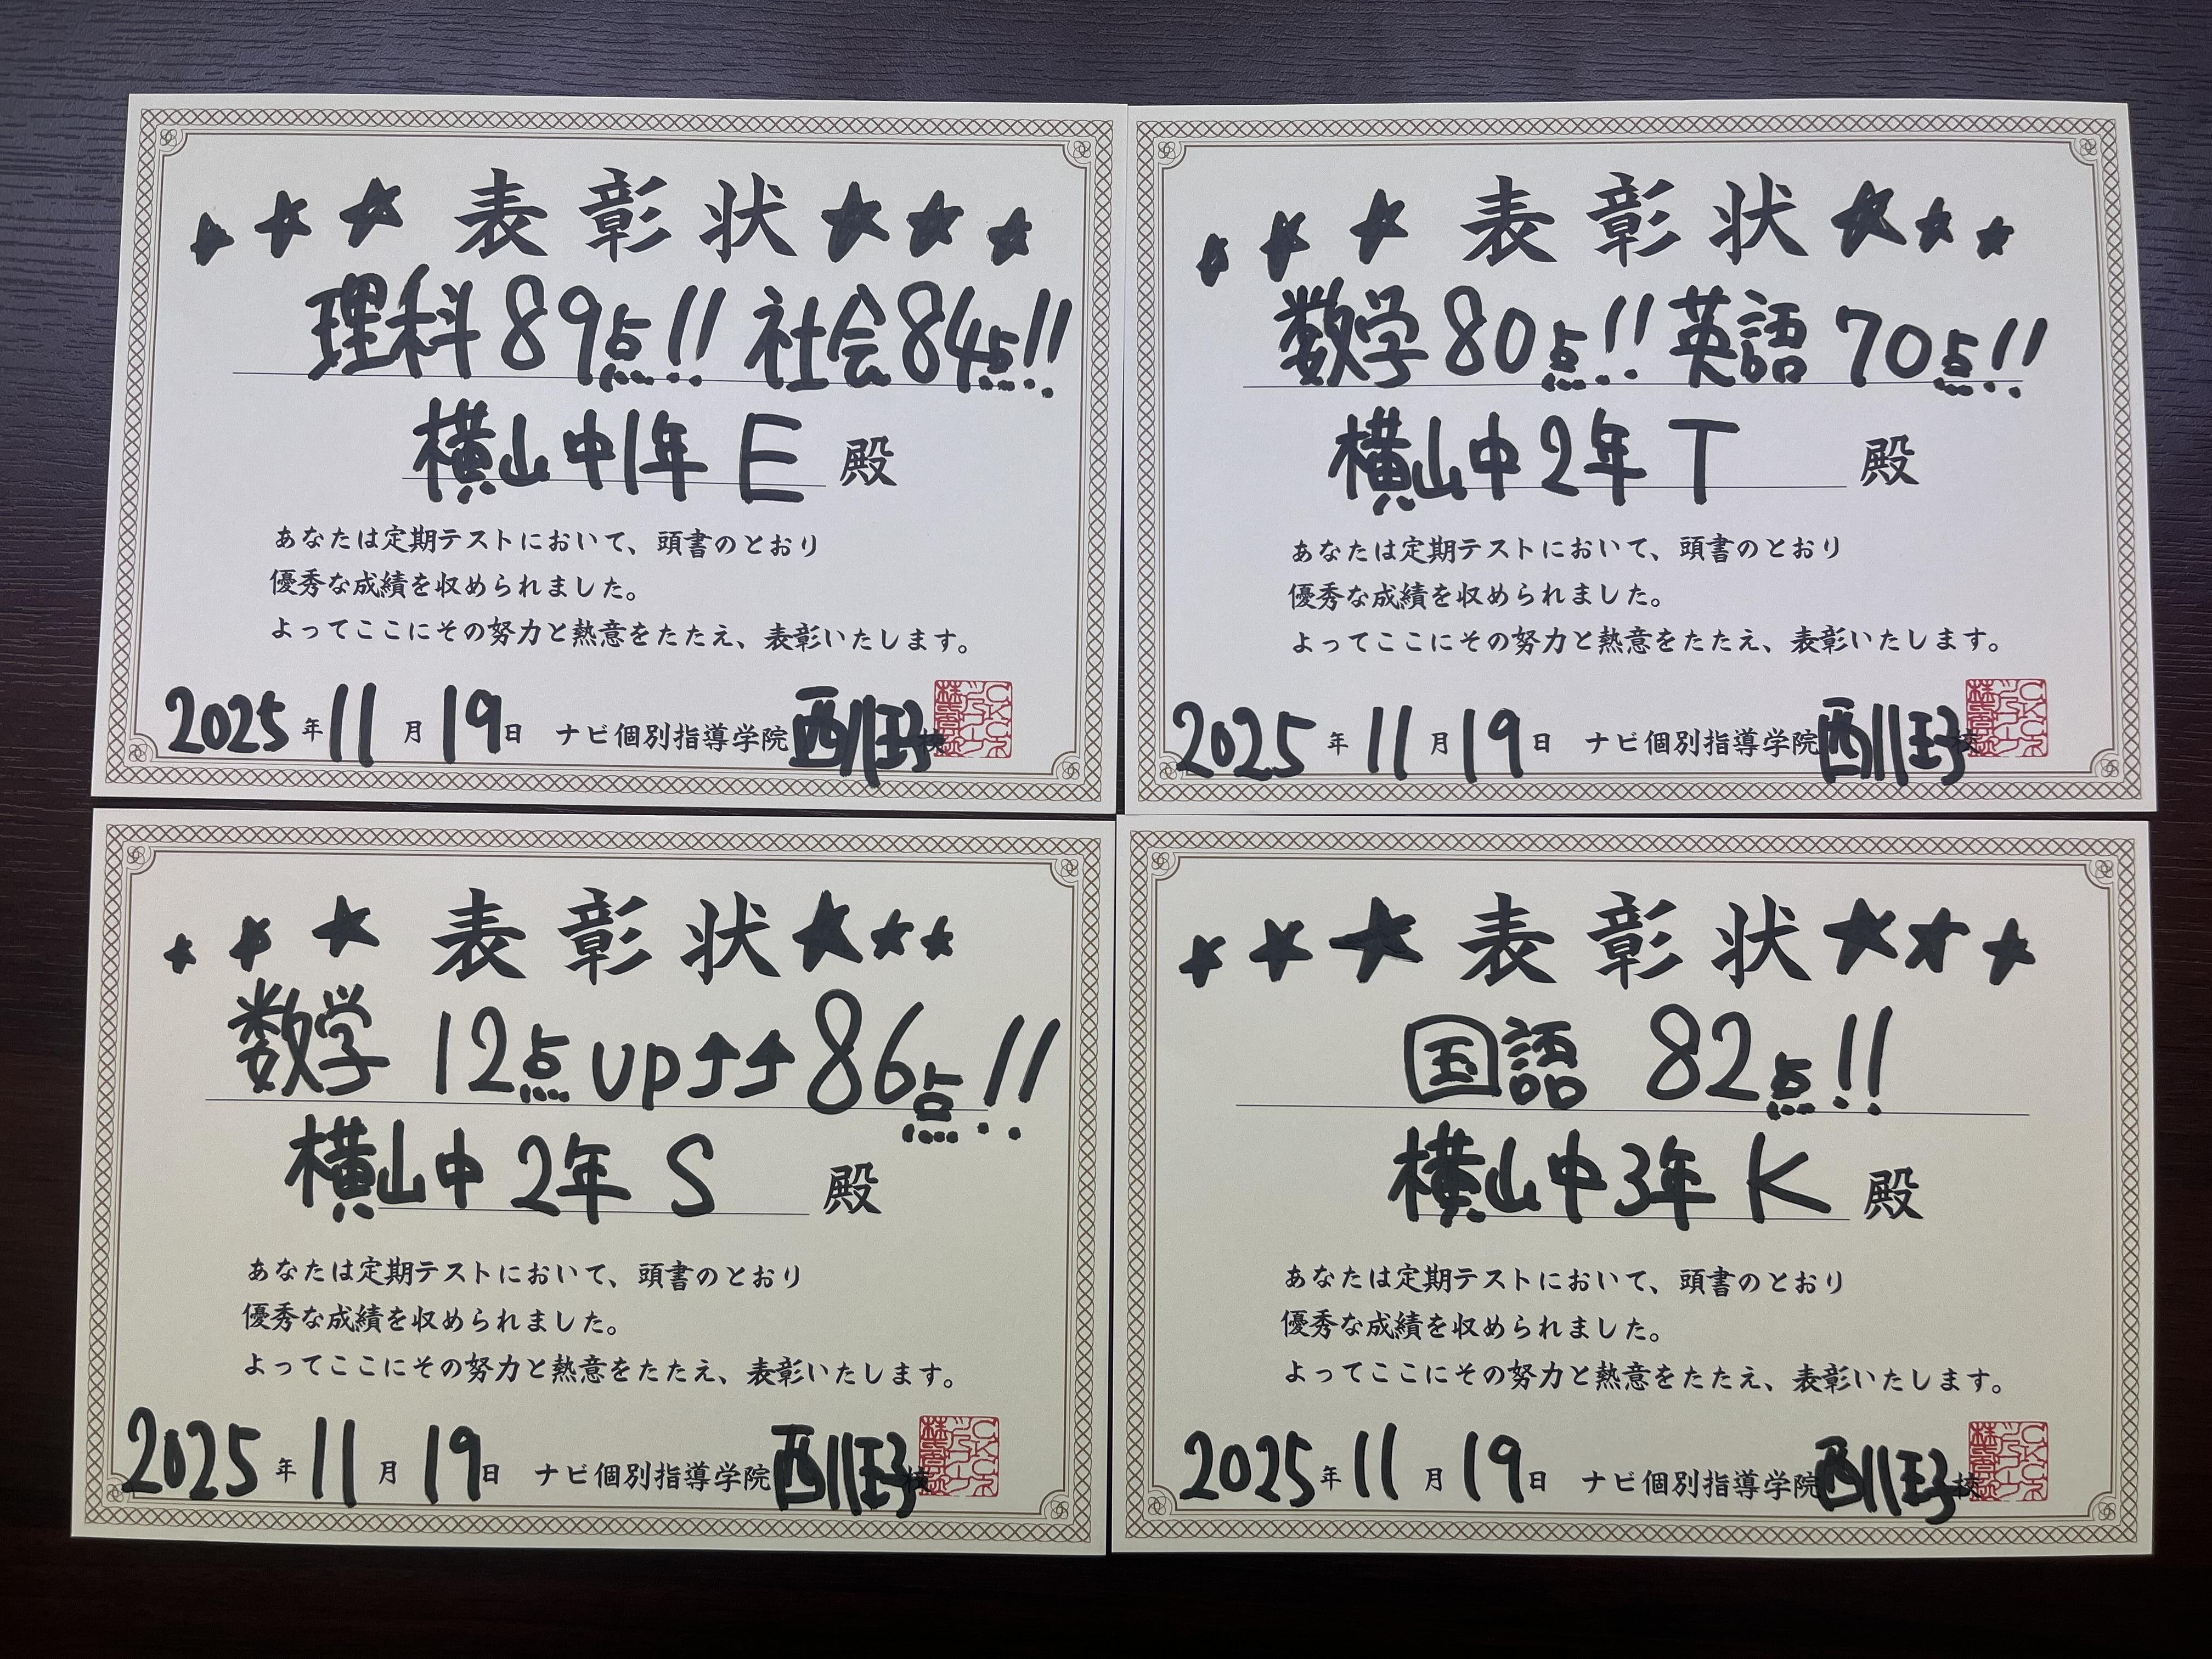 表彰状
理科89点!! 社会84点!!
横山中1年 E 殿
あなたは定期テストにおいて、頭書のとおり
優秀な成績を収められました。
よってここにその努力と熱意をたたえ、表彰いたします。
2025年11月19日 ナビ個別指導学院 西川田校
表彰状
数学80点!! 英語70点!!
横山中2年 T 殿
あなたは定期テストにおいて、頭書のとおり
優秀な成績を収められました。
よってここにその努力と熱意をたたえ、表彰いたします。
2025年11月19日 ナビ個別指導学院
表彰状
数学 12点up↑↑86点!!
横山中 2年 S 殿
あなたは定期テストにおいて、頭書のとおり
優秀な成績を収められました。
よってここにその努力と熱意をたたえ、表彰いたします。
2025年11月19日 ナビ個別指導学院
表彰状
国語 82点!!
横山中3年 K 殿
あなたは定期テストにおいて、頭書のとおり
優秀な成績を収められました。
よってここにその努力と熱意をたたえ、表彰いたします。
2025年11月19日 ナビ個別指導学院